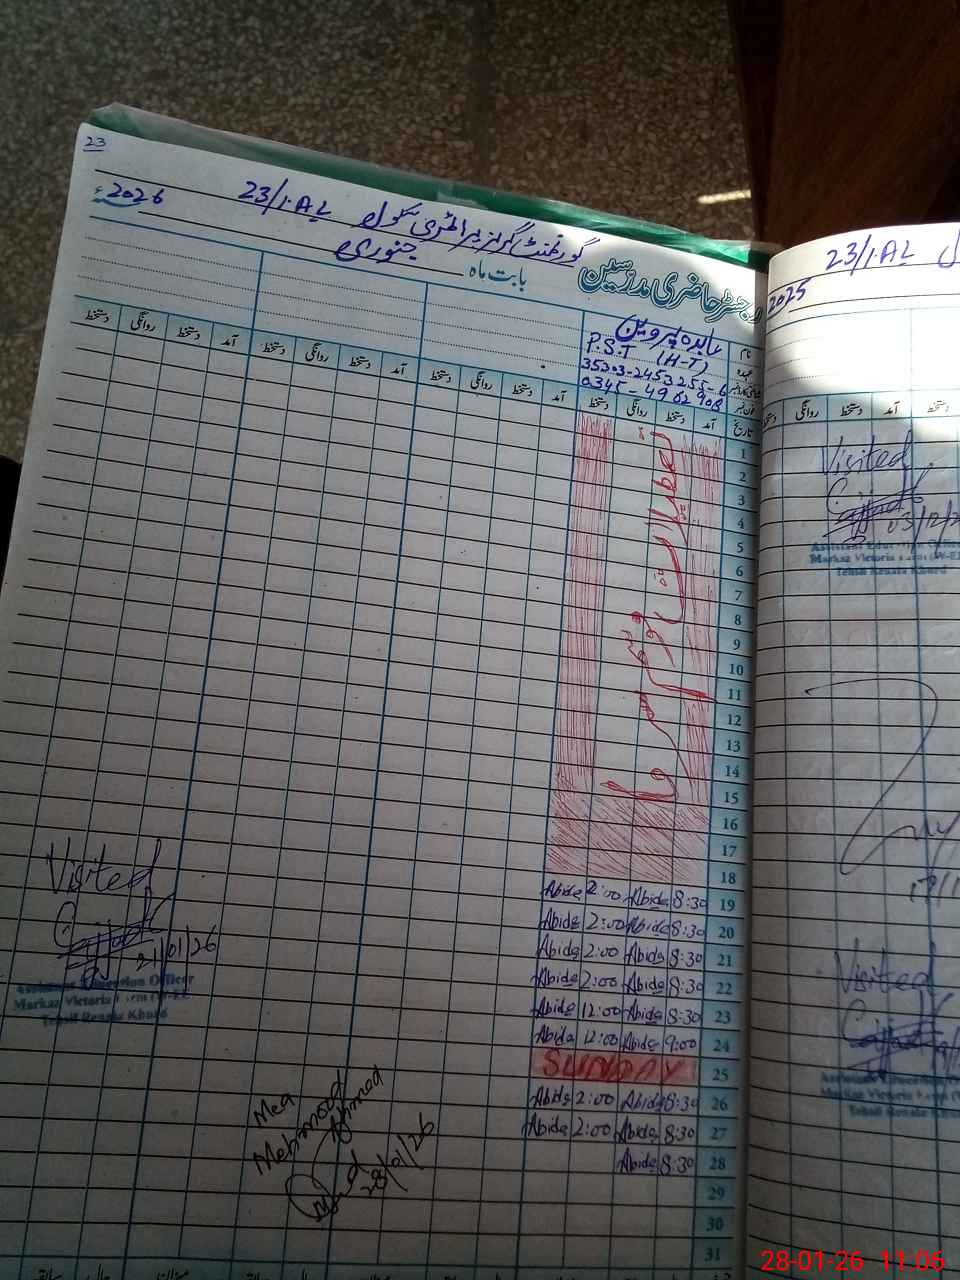 23
گورنمنٹ گرلز پرائمری سکول 23/1.AL
رجسٹر حاضری مدرسین بابت ماہ جنوری 2026ء
نام عابدہ پروین
عہدہ P.S.T (H-T)
35303-2453255-6
فون نمبر 0345-4962908
تاریخ آمد دستخط روانگی دستخط آمد دستخط روانگی دستخط آمد دستخط روانگی دستخط آمد دستخط روانگی دستخط
1
2
3
4
5
6
7
8
9
10
11
12
13
14
15
16
17
18
تعطیلات موسم سرما
19 8:30 Abida 2:00 Abida
20 8:30 Abida 2:00 Abida
21 8:30 Abida 2:00 Abida
22 8:30 Abida 2:00 Abida
23 8:30 Abida 12:00 Abida
24 9:00 Abida 12:00 Abida
25 SUNDAY
26 8:30 Abida 2:00 Abida
27 8:30 Abida 2:00 Abida
28 8:30 Abida
29
30
31
Visited
21/01/26
Assistant Education Officer
Markaz Victoria Farm (W-EE
Tehsil Renala Khurd
Mea
Mehmood Ahmad
28/01/26
23/1.AL
2025
آمد دستخط روانگی دستخط
Visited
03/12/2
Assistant Education Office
Markaz Victoria Farm (W-EE
Tehsil Renala Khurd
17/1
Visited
Assistant Education O
Markaz Victoria Farm (
Tehsil Renala Khur
28-01-26 11:06